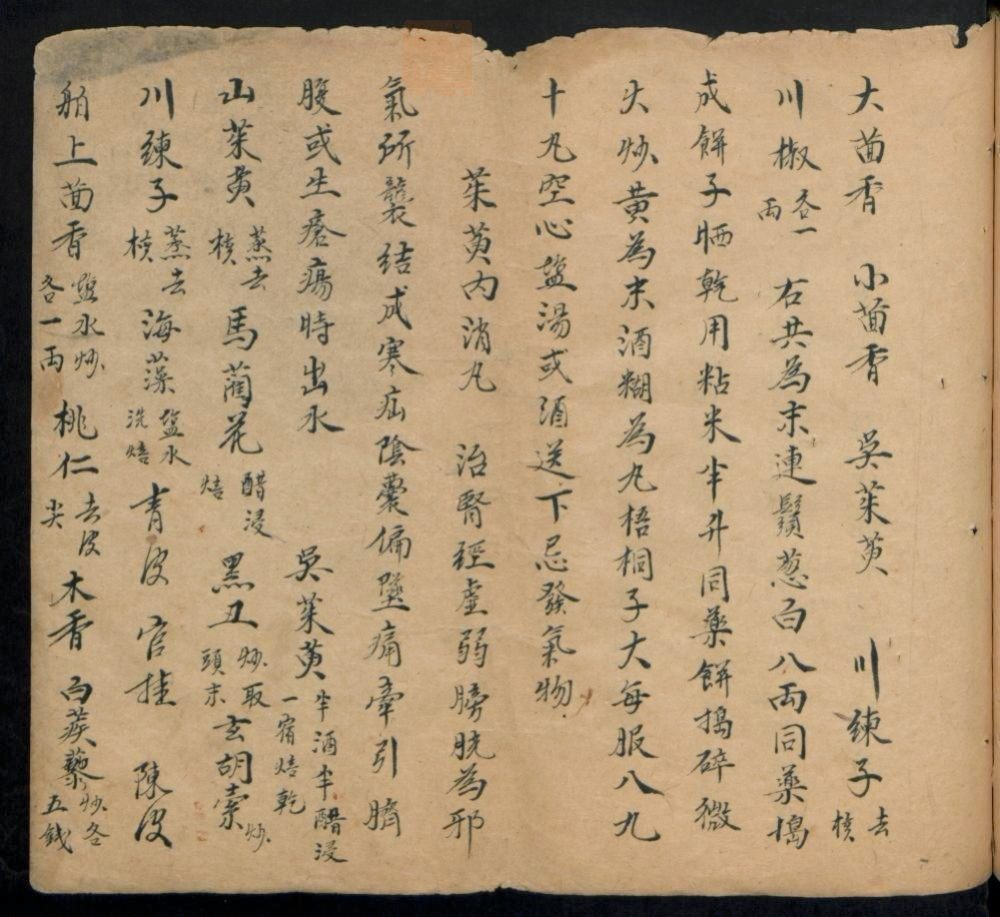 大茴香 小茴香 吳茱萸 川練子去核
川椒各一兩 右共為末連鬚葱白八兩同藥搗
成餅子晒乾用粘米半升同藥餅搗碎微
火炒黃為末酒糊為丸梧桐子大每服八九
十丸空心塩湯或酒送下忌發氣物
茱萸內消丸 治腎經虛弱膀胱為邪
氣所襲結成寒疝陰囊偏墜痛牽引臍
腹或生瘡瘍時出水 吳茱萸半酒半醋浸一宿焙乾
山茱萸蒸去核 馬藺花醋浸焙 黑丑炒取頭末 玄胡索炒
川練子蒸去核 海藻塩水洗焙 青皮 官桂 陳皮
舶上茴香塩水炒各一兩 桃仁去皮尖 木香 白蒺藜炒各五錢